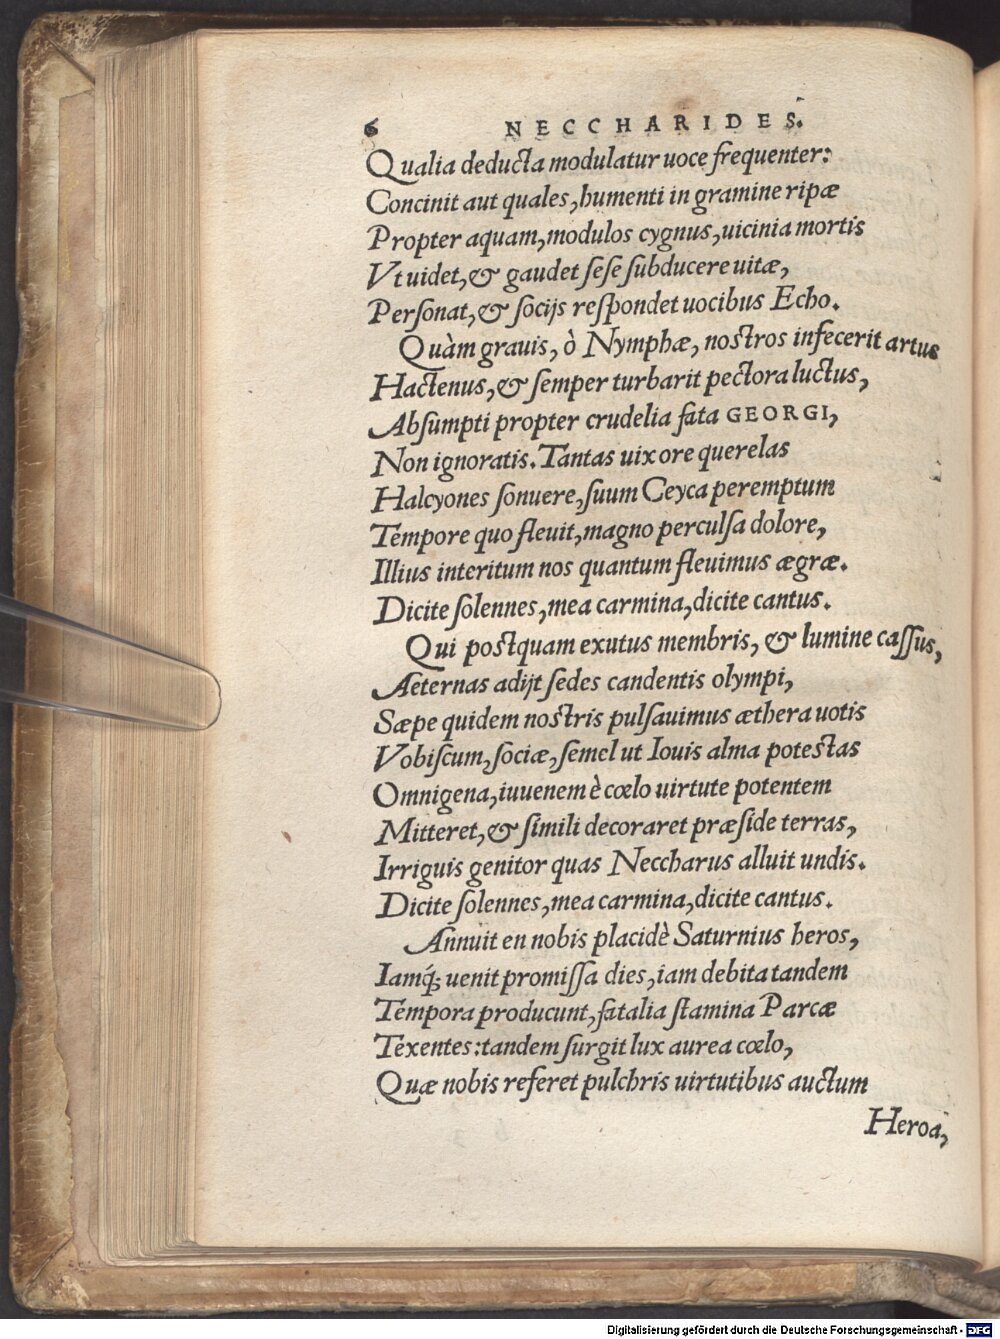 6 NECCHARIDES.
Qualia deducta modulatur uoce frequenter:
Concinit aut quales, humenti in gramine ripæ
Propter aquam, modulos cygnus, uicinia mortis
Vt uidet, & gaudet sese subducere uitæ,
Personat, & socijs respondet uocibus Echo.
Quàm grauis, ò Nymphæ, nostros infecerit artus
Hactenus, & semper turbarit pectora luctus,
Absumpti propter crudelia fata GEORGI,
Non ignoratis. Tantas uix ore querelas
Halcyones sonuere, suum Ceyca peremptum
Tempore quo fleuit, magno perculsa dolore,
Illius interitum nos quantum fleuimus ægræ.
Dicite solennes, mea carmina, dicite cantus.
Qui postquam exutus membris, & lumine cassus,
Aeternas adijt sedes candentis olympi,
Sæpe quidem nostris pulsauimus æthera uotis
Vobiscum, sociæ, semel ut Iouis alma potestas
Omnigena, iuuenem è cœlo uirtute potentem
Mitteret, & simili decoraret præside terras,
Irriguis genitor quas Neccharus alluit undis.
Dicite solennes, mea carmina, dicite cantus.
Annuit en nobis placidè Saturnius heros,
Iamq́; uenit promissa dies, iam debita tandem
Tempora producunt, fatalia stamina Parcæ
Texentes: tandem surgit lux aurea cœlo,
Quæ nobis referet pulchris uirtutibus auctum
Heroa,
Digitalisierung gefördert durch die Deutsche Forschungsgemeinschaft - DFG